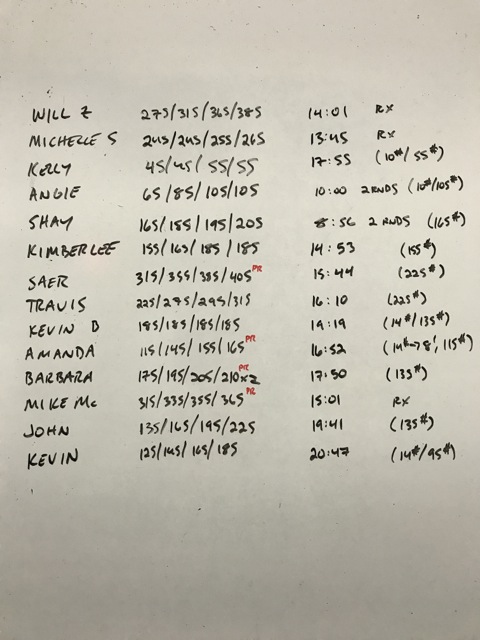 WILL Z 275/315/365/385 14:01 RX
MICHELLE S 245/245/255/265 13:45 RX
KELLY 45/45/55/55 17:55 (10#/55#)
ANGIE 65/85/105/105 10:00 2 RNDS (10#/105#)
SHAY 165/185/195/205 8:56 2 RNDS (165#)
KIMBERLEE 155/165/185/185 14:53 (155#)
SAER 315/355/385/405 PR 15:44 (225#)
TRAVIS 225/275/295/315 16:10 (225#)
KEVIN D 185/185/185/185 19:19 (14#/135#)
AMANDA 115/145/155/165 PR 16:52 (14#→8', 115#)
BARBARA 175/195/205/210x2 PR 17:50 (135#)
MIKE MC 315/335/355/365 PR 15:01 RX
JOHN 135/165/195/225 19:41 (135#)
KEVIN 125/145/165/185 20:47 (14#/95#)